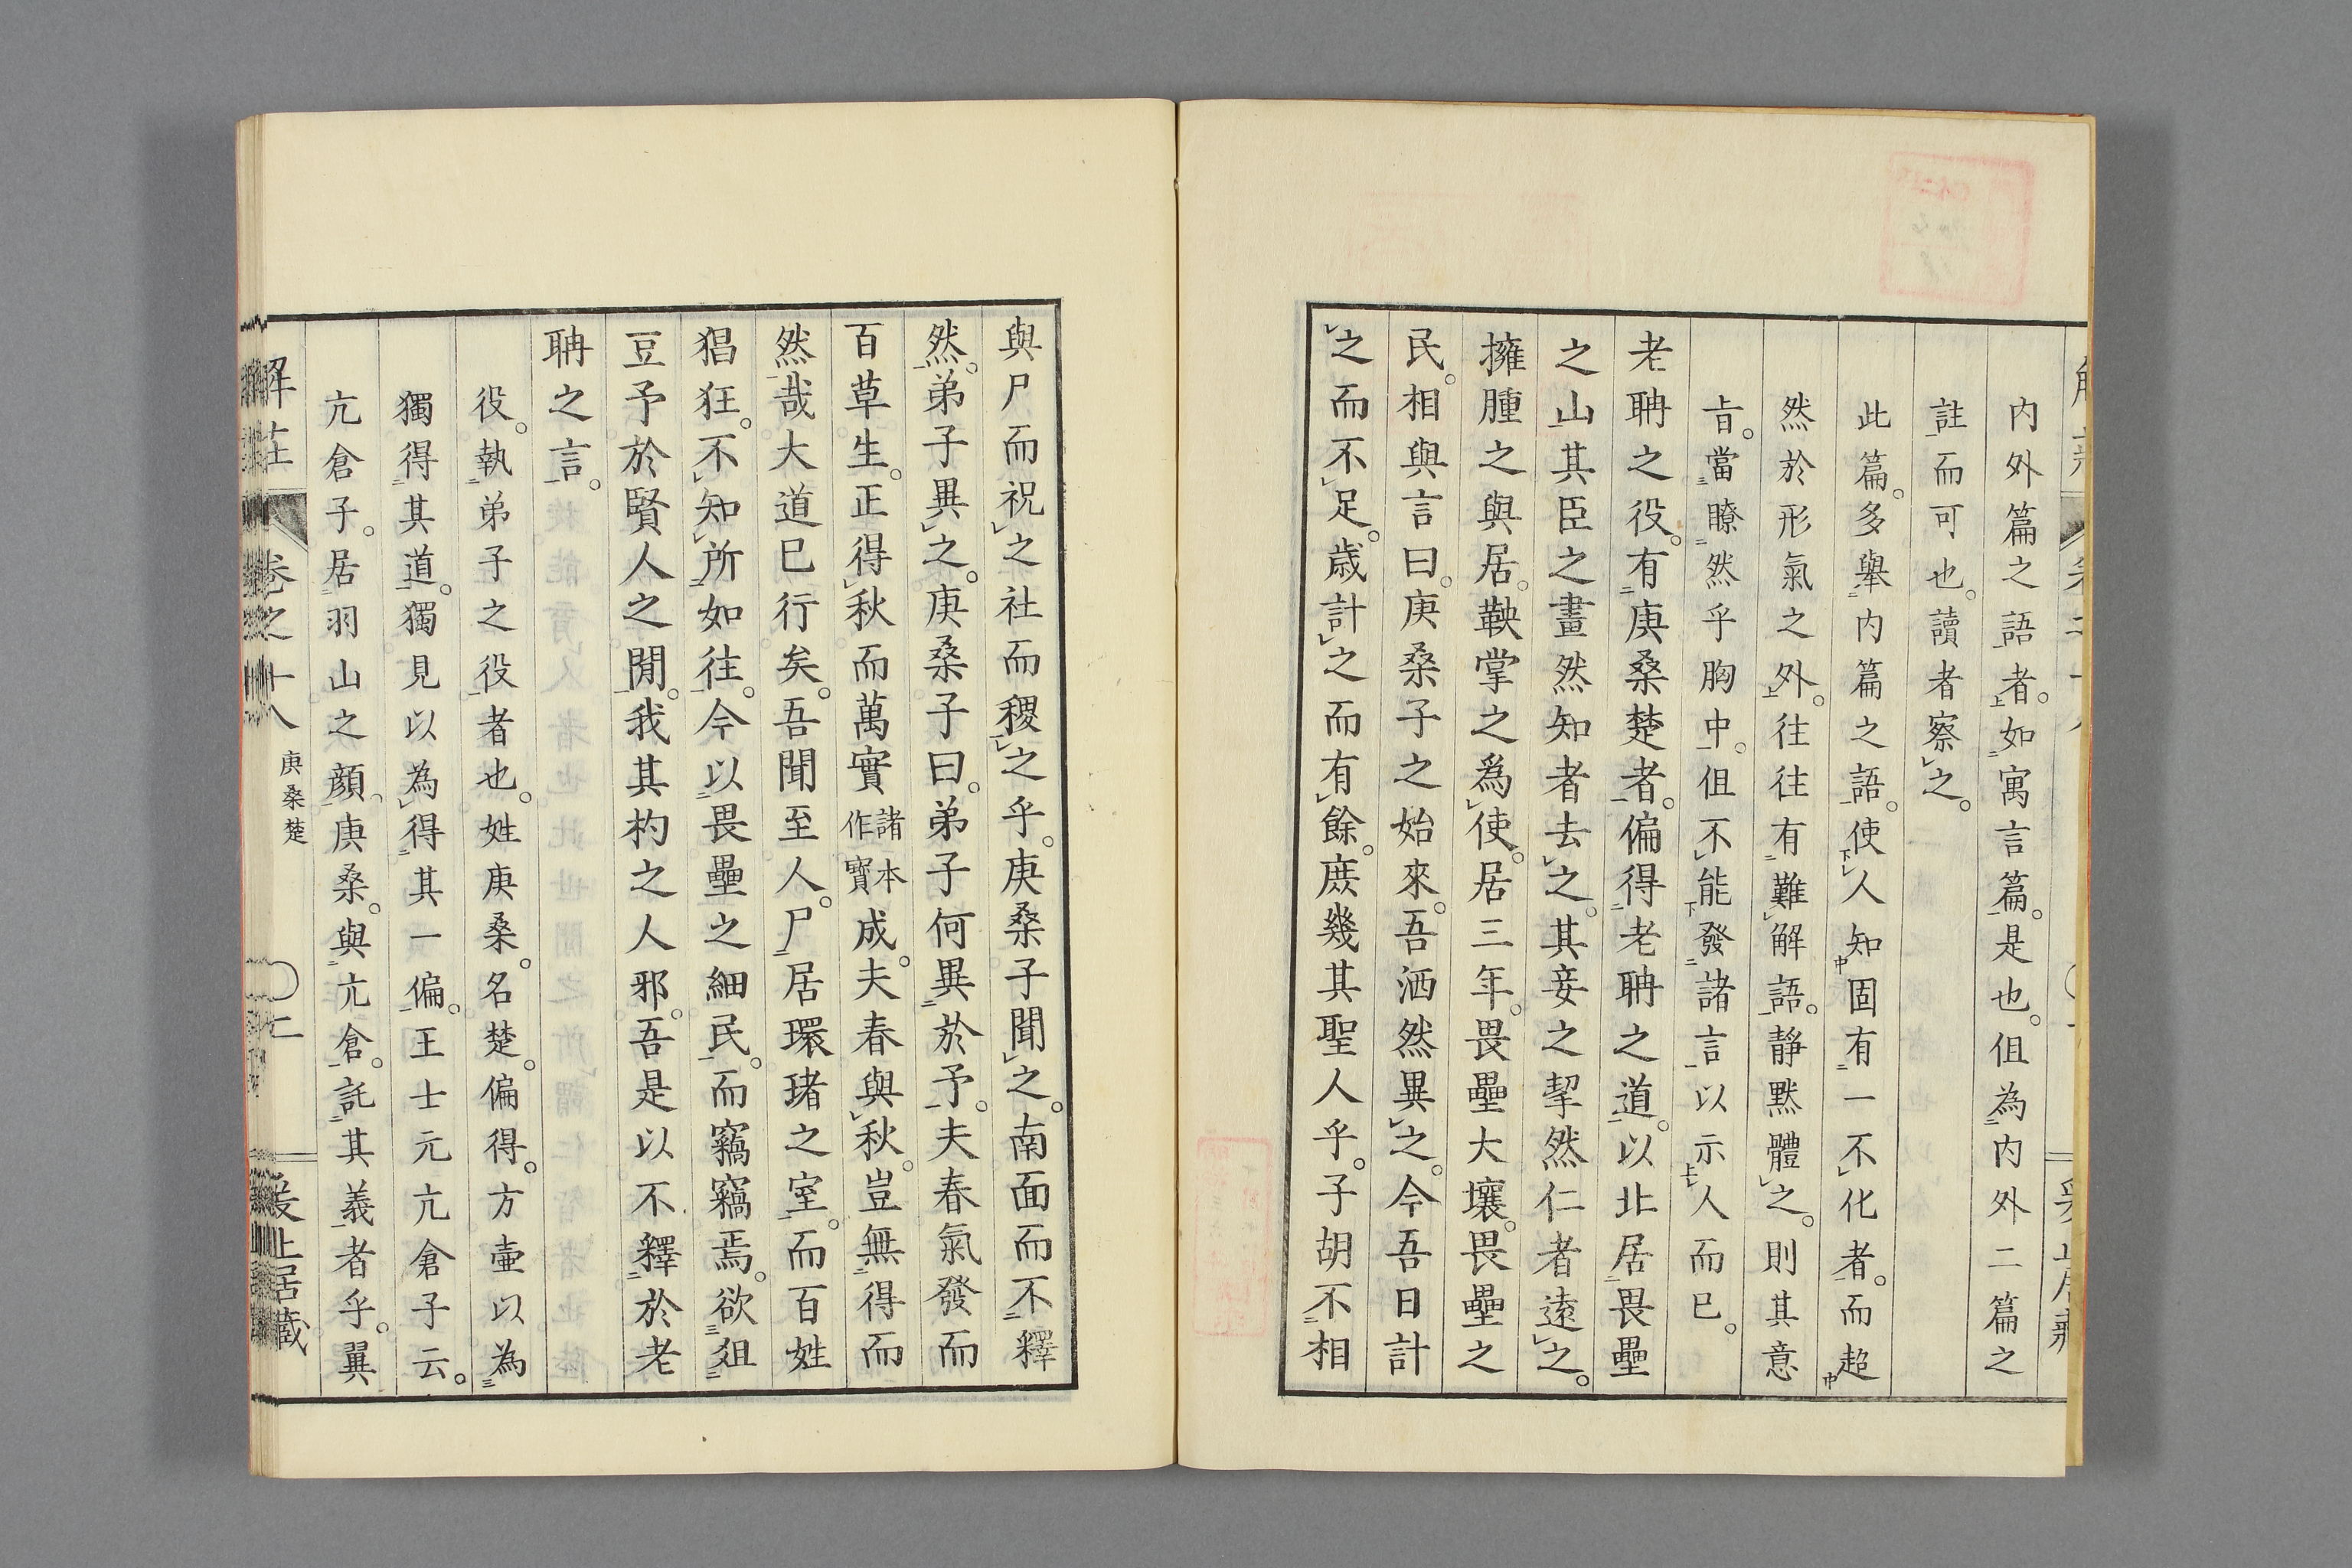 内外篇之語者。如寓言篇。是也。但為内外二篇之
註而可也。讀者察之。
此篇。多舉内篇之語。使人知固有一不化者。而超
然於形氣之外。往往有難解語。靜默體之。則其意
㫖。當瞭然乎胸中。但不能發諸言以示人而已。
老聃之役。有庚桑楚者。偏得老聃之道。以北居畏壘
之山其臣之畫然知者去之。其妾之挈然仁者遠之。
擁腫之與居。鞅掌之爲使。居三年。畏壘大壤。畏壘之
民。相與言曰。庚桑子之始來。吾洒然異之。今吾日計
之而不足。歲計之而有餘。庶幾其聖人乎。子胡不相
與尸而祝之社而稷之乎。庚桑子聞之。南面而不釋
然。弟子異之。庚桑子曰。弟子何異於予。夫春氣發而
百草生。正得秋而萬實諸本作寶成。夫春與秋。豈無得而
然哉大道已行矣。吾聞至人。尸居環堵之室。而百姓
猖狂。不知所如往。今以畏壘之細民。而竊竊焉。欲俎
豆予於賢人之閒。我其杓之人邪。吾是以不釋於老
聃之言。
役。執弟子之役者也。姓庚桑。名楚。偏得。方壷以為
獨得其道。獨見以為得其一偏。王士元亢倉子云。
亢倉子。居羽山之顔。庚桑。與亢倉。託其義者乎。翼
解莊 卷之十八 庚桑楚 二 爰止居藏